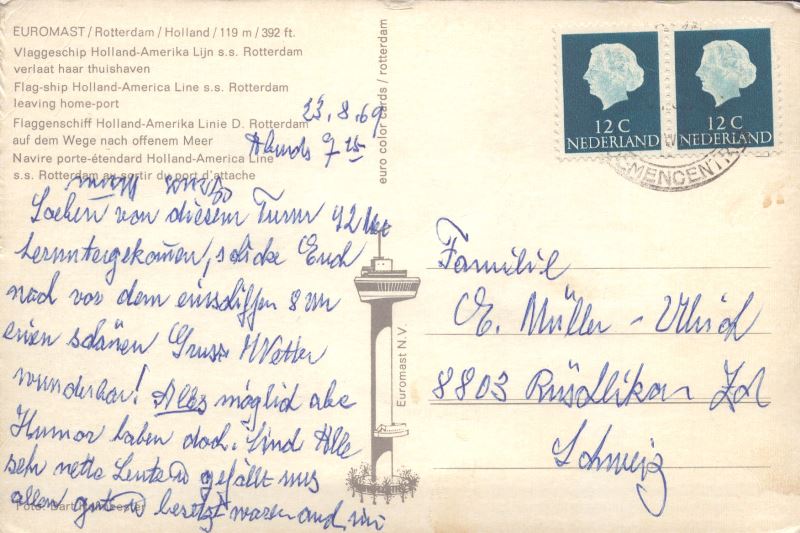 EUROMAST / Rotterdam / Holland / 119 m / 392 ft.
Vlaggeschip Holland-Amerika Lijn s.s. Rotterdam
verlaat haar thuishaven
Flag-ship Holland-America Line s.s. Rotterdam
leaving home-port
Flaggenschiff Holland-Amerika Linie D. Rotterdam
auf dem Wege nach offenem Meer
Navire porte-étendard Holland-America Line
s.s. Rotterdam au sortir du port d'attache
23.8.69
Abends 7 15
Soeben von diesem Turm 92
heruntergekommen, schicke Euch
noch vor dem einschiffen
einen schönen Gruss Wetter
wunderbar! Alles möglich abe
Humor haben doch. Sind Alle
sehr nette Leute gefällt uns
allen gut besetzt waren und
Foto: Bart
euro color cards / rotterdam
Euromast N.V.
12 C
NEDERLAND
12 C
NEDERLAND
Familie
E. Müller - Ullrich
8803 Rüschlikon Zch
Schweiz